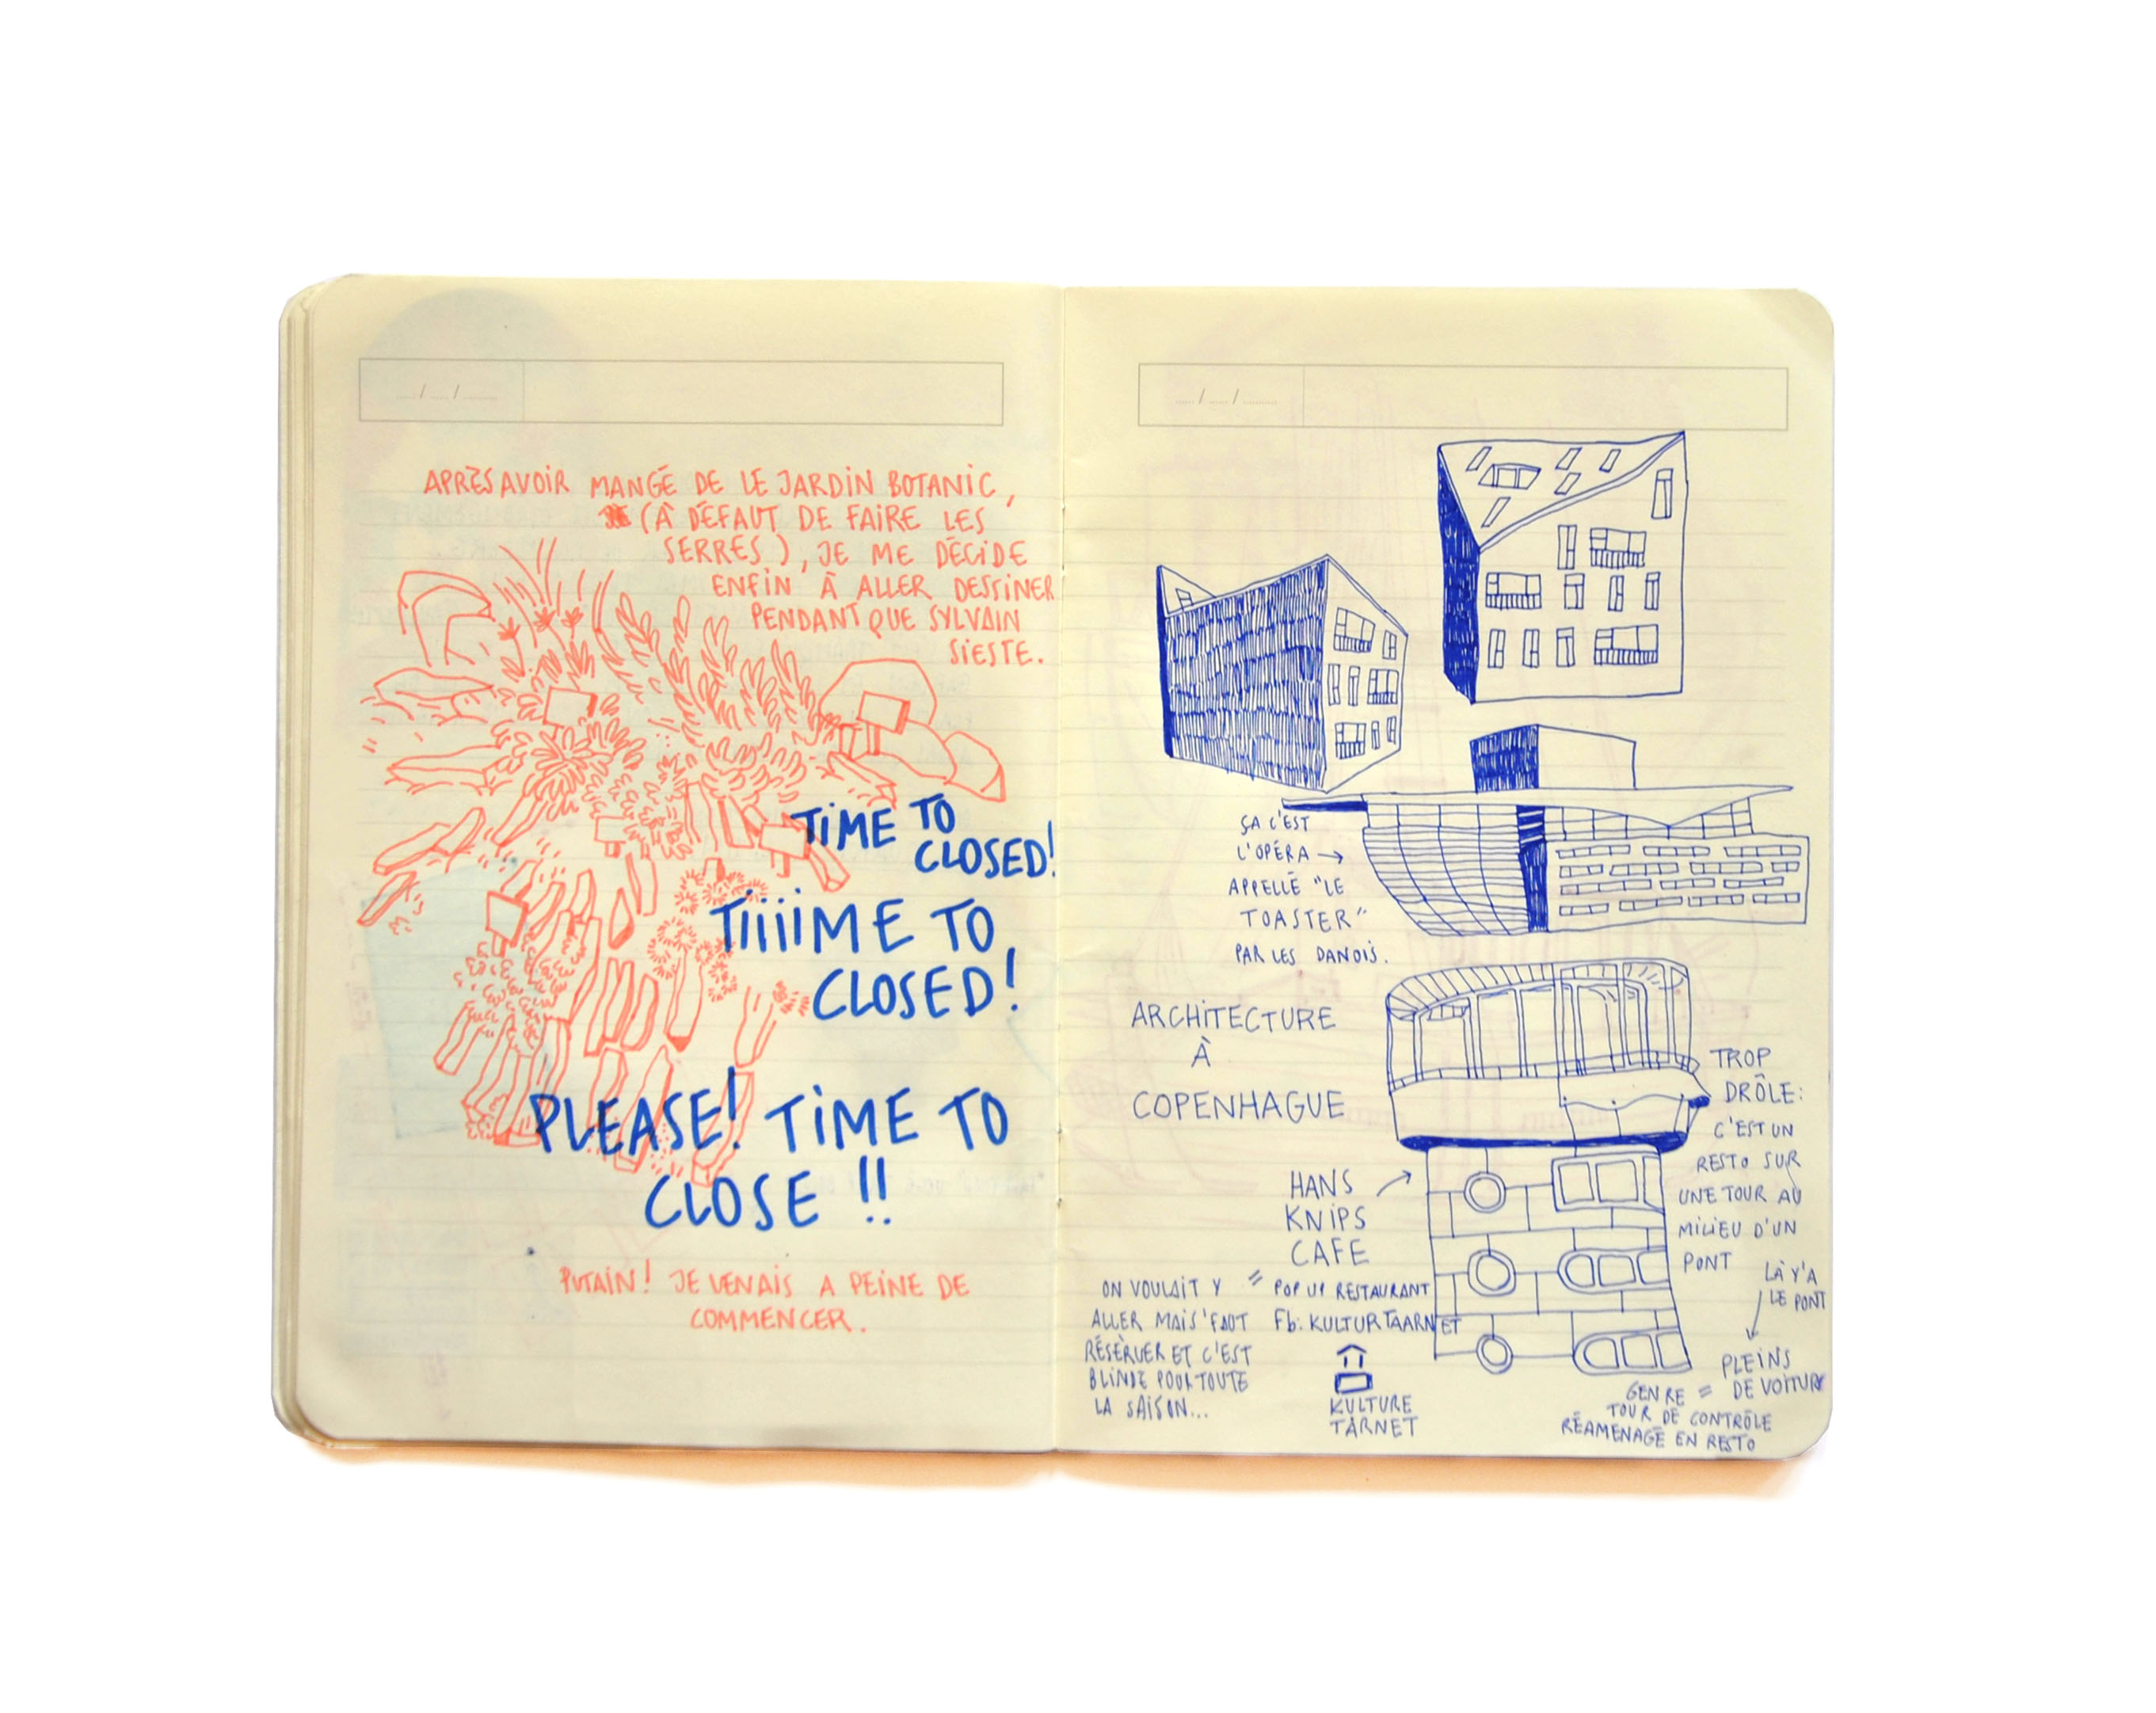 APRÈS AVOIR MANGÉ DE LE JARDIN BOTANIC,
(À DÉFAUT DE FAIRE LES
SERRES), JE ME DÉCIDE
ENFIN À ALLER DESSINER
PENDANT QUE SYLVAIN
SIESTE.
TIME TO
CLOSED!
TiiiiME TO
CLOSED!
PLEASE! TIME TO
CLOSE !!
PUTAIN! JE VENAIS A PEINE DE
COMMENCER.
ÇA C'EST
L'OPÉRA →
APPELLÉ "LE
TOASTER"
PAR LES DANOIS.
ARCHITECTURE
À
COPENHAGUE
TROP
DRÔLE:
C'EST UN
RESTO SUR
UNE TOUR AU
MILIEU D'UN
PONT
HANS
KNIPS
CAFE
= POP UP RESTAURANT
Fb: KULTURTAARNET
KULTURE
TARNET
ON VOULAIT Y
ALLER MAIS 'FAUT
RÉSERVER ET C'EST
BLINDÉ POUR TOUTE
LA SAISON...
LÀ Y'A
LE PONT
PLEINS
DE VOITURE
GENRE =
TOUR DE CONTRÔLE
RÉAMENAGÉ EN RESTO